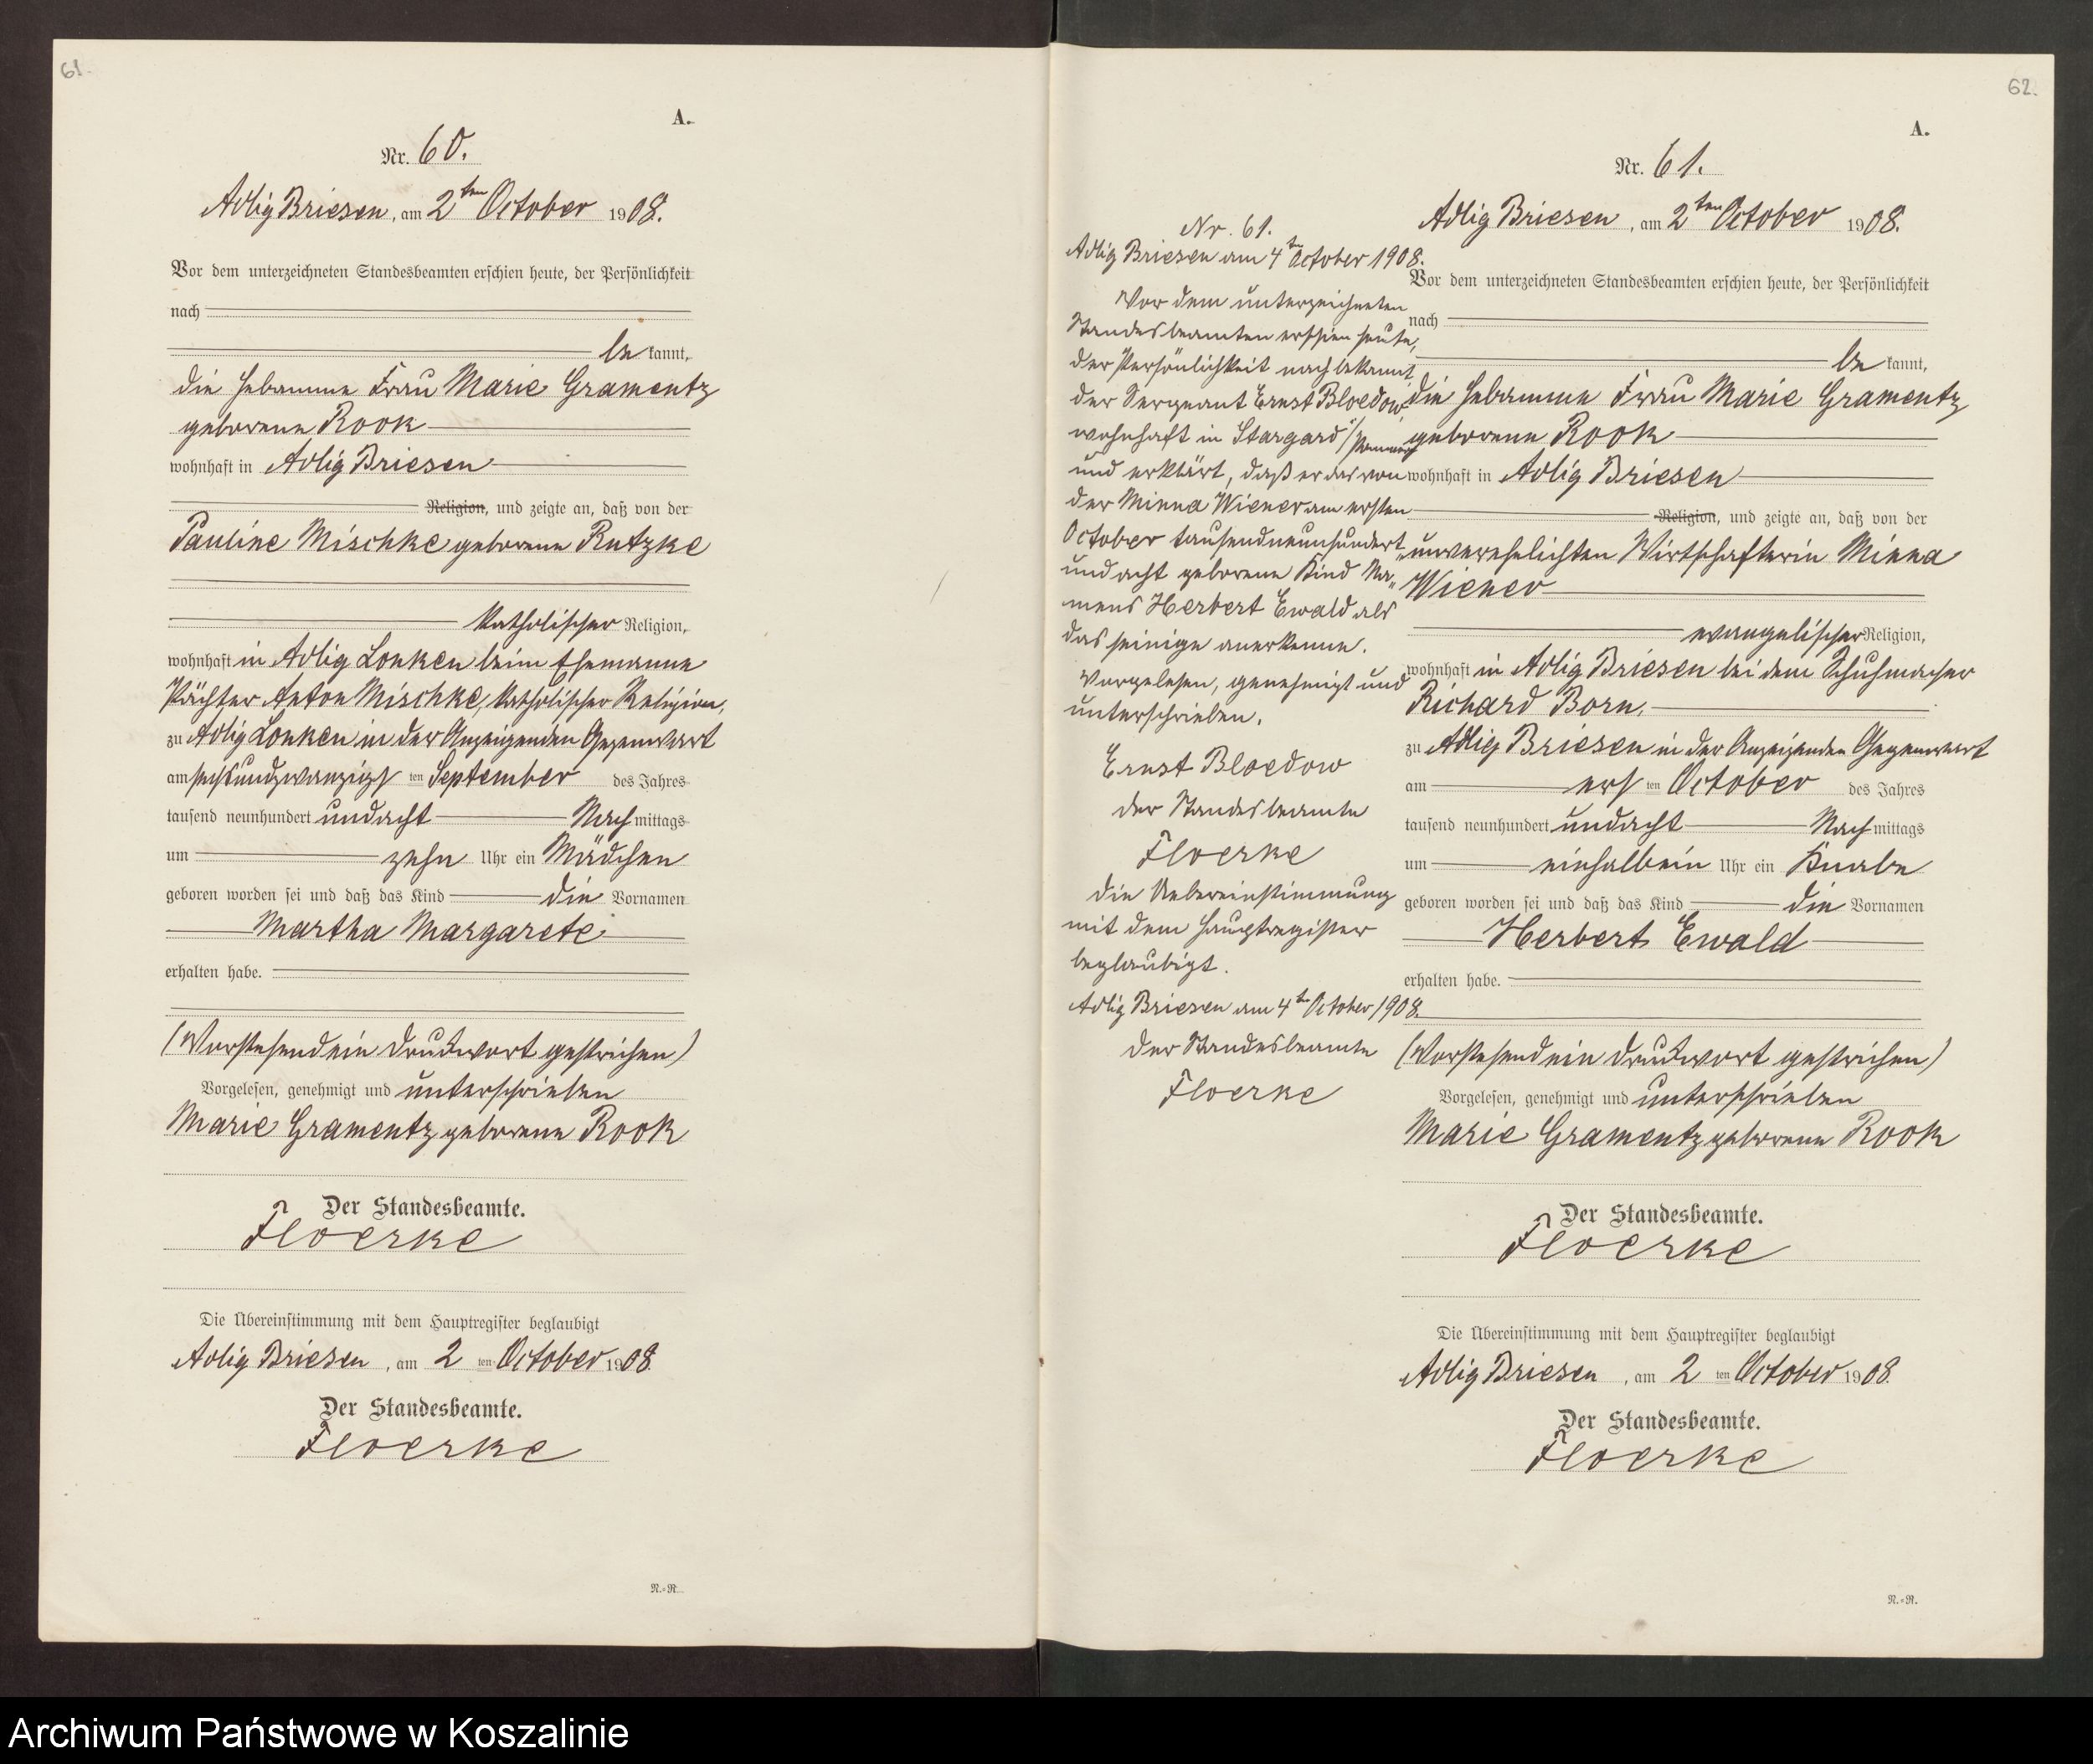 61.
A.
Nr. 60.
Adlig Briesen, am 2ten October 1908.
Vor dem unterzeichneten Standesbeamten erschien heute, der Persönlichkeit
nach
bekannt,
die Hebamme Frau Marie Gramentz
geborene Rook
wohnhaft in Adlig Briesen
Religion, und zeigte an, daß von der
Pauline Mischke geborene Rutzke
katholischer Religion,
wohnhaft in Adlig Lonken beim Ehemanne
Pächter Anton Mischke, katholischer Religion,
zu Adlig Lonken in der Anzeigenden Gegenwart
am sechsundzwanzigsten September des Jahres
tausend neunhundert undacht Nachmittags
um zehn Uhr ein Mädchen
geboren worden sei und daß das Kind die Vornamen
Martha Margarete
erhalten habe.
(Vorstehend ein Druckwort gestrichen)
Vorgelesen, genehmigt und unterschrieben
Marie Gramentz geborene Rook
Der Standesbeamte.
Floerke
Die Übereinstimmung mit dem Hauptregister beglaubigt
Adlig Briesen, am 2ten October 1908.
Der Standesbeamte.
Floerke
N.=R.
62.
A.
Nr. 61.
Adlig Briesen, am 2ten October 1908.
Vor dem unterzeichneten Standesbeamten erschien heute, der Persönlichkeit
nach
bekannt,
die Hebamme Frau Marie Gramentz
geborene Rook
wohnhaft in Adlig Briesen
Religion, und zeigte an, daß von der
unverehelichten Wirtschafterin Minna
Wiener
evangelischer Religion,
wohnhaft in Adlig Briesen bei dem Schuhmacher
Richard Born,
zu Adlig Briesen in der Anzeigenden Gegenwart
am ersten October des Jahres
tausend neunhundert undacht Nachmittags
um einhalbein Uhr ein Knabe
geboren worden sei und daß das Kind die Vornamen
Herbert Ewald
erhalten habe.
(Vorstehend ein Druckwort gestrichen)
Vorgelesen, genehmigt und unterschrieben
Marie Gramentz geborene Rook
Der Standesbeamte.
Floerke
Die Übereinstimmung mit dem Hauptregister beglaubigt
Adlig Briesen, am 2ten October 1908.
Der Standesbeamte.
Floerke
N.=R.
Nr. 61.
Adlig Briesen am 4ten October 1908.
Vor dem unterzeichneten
Standesbeamten erschien heute,
der Persönlichkeit nach bekannt,
der Sergeant Ernst Bloedow
wohnhaft in Stargard i/Pommern
und erklärt, daß er das von
der Minna Wiener am ersten
October tausendneunhundert
und acht geborene Kind Na„
mens Herbert Ewald als
das seinige anerkenne.
Vorgelesen, genehmigt und
unterschrieben.
Ernst Bloedow
der Standesbeamte
Floerke
Die Uebereinstimmung
mit dem Hauptregister
beglaubigt.
Adlig Briesen am 4ten October 1908.
Der Standesbeamte
Floerke
Archiwum Państwowe w Koszalinie